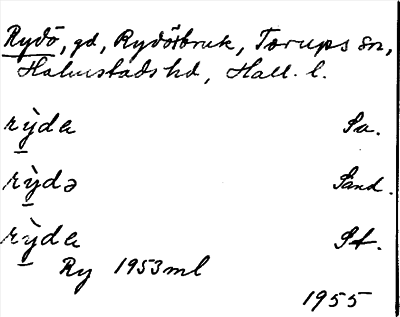 Rydö, gd, Rydöbruk, Torups sn,
Halmstads hd, Hall. l.
rỳda Su.
rỳdə Sand.
rỳda St.
Ry 1953 ml
1955